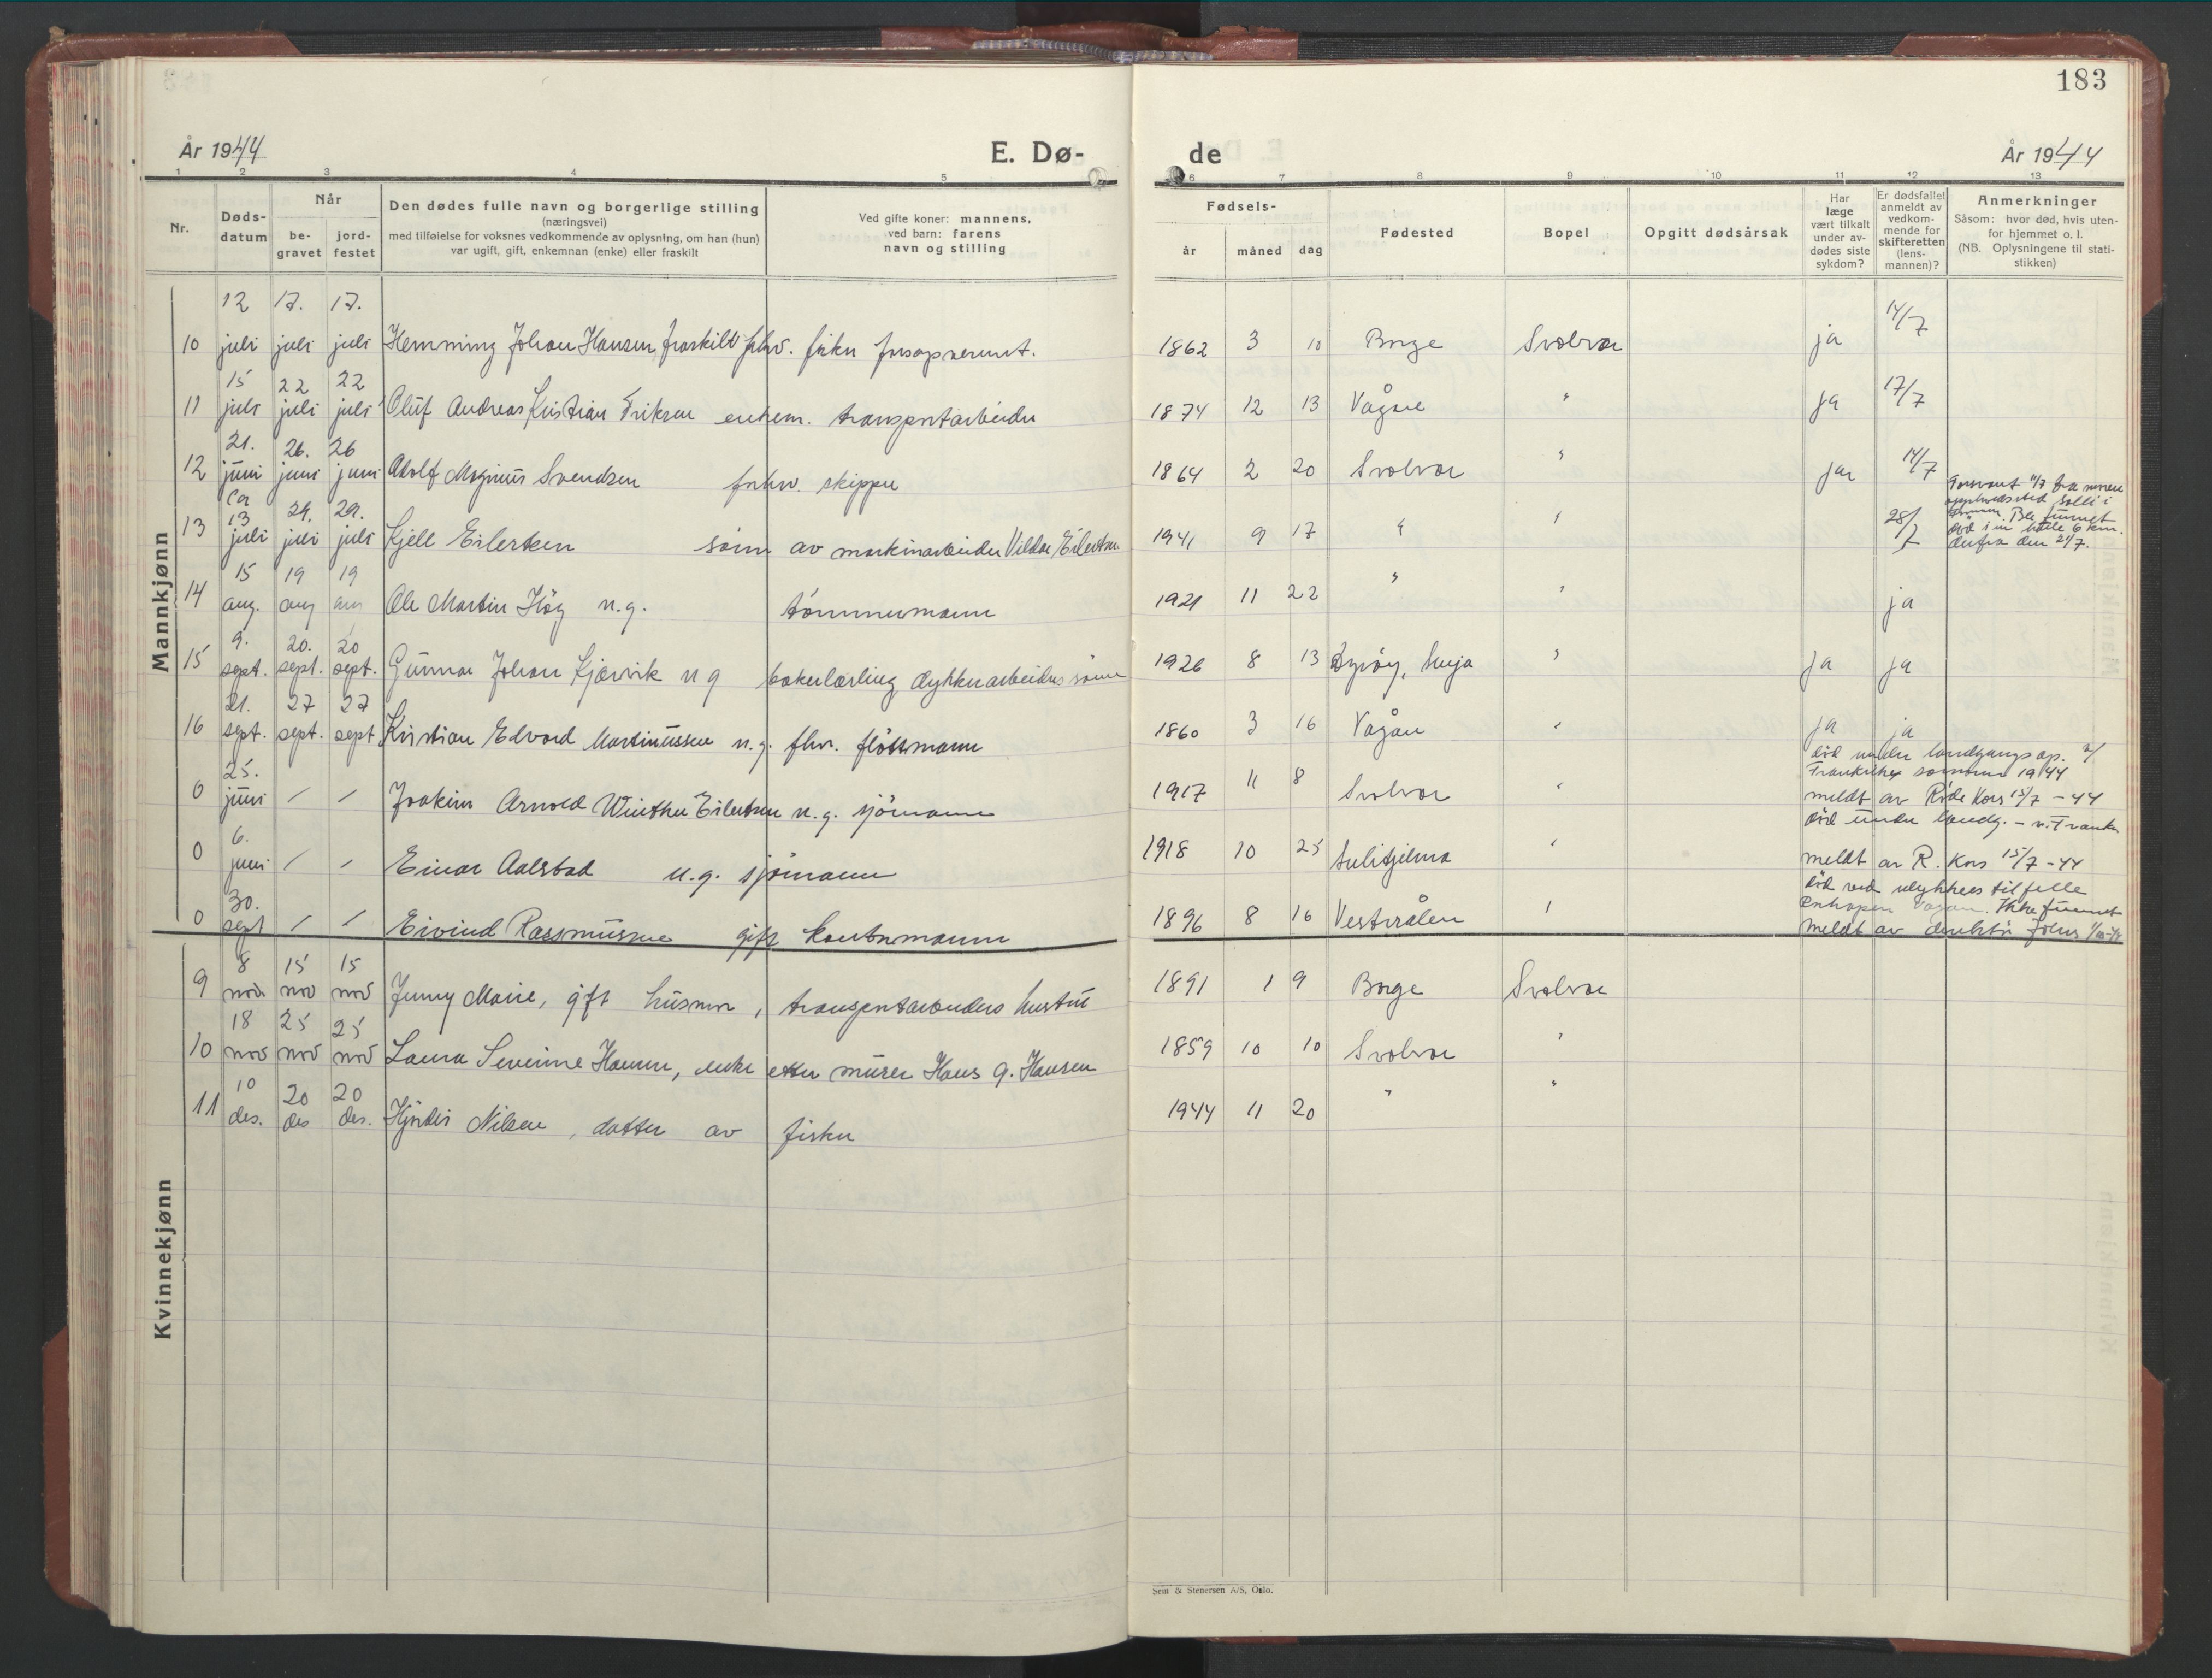 183
År 1944
E. Dø-
de
År 1944
1 2 3 4 5 6 7 8 9 10 11 12 13
Nr.
Døds-
datum
Når
be-
gravet
jord-
festet
Den dødes fulle navn og borgerlige stilling
(næringsvei)
med tilføielse for voksnes vedkommende av oplysning, om han (hun)
var ugift, gift, enkemnan (enke) eller fraskilt
Ved gifte koner: mannens,
ved barn: farens
navn og stilling
Fødsels-
år måned dag
Fødested
Bopel
Opgitt dødsårsak
Har
læge
vært tilkalt
under av-
dødes siste
sykdom?
Er dødsfallet
anmeldt av
vedkom-
mende for
skifteretten
(lens-
mannen)?
Anmerkninger
Såsom: hvor død, hvis uten-
for hjemmet o. l.
(NB. Oplysningene til stati-
stikken)
Mannkjønn
12 17. 17.
10 juli juli juli Hemming Johan Hansen, fraskilt fhv. fisker forsorgsernt. 1862 3 10 Borge Svolvær ja 14/7
15 22 22
11 juli juli juli Oluf Andreas Kristian Eriksen enkem. transportarbeider 1874 12 13 Vågan " ja 17/7
21. 26. 26
12 juni juni juni Adolf Magnus Svendsen forhv. skipper 1864 2 20 Svolvær " ja 14/7
ca
13 29. 29.
13 juli juli juli Kjell Eilertsen sønn av maskinarbeider Eilertsen 1941 9 17 " " 28/7
Forsvant 11/7 fra
oppholdssted i
Ble funnet
død i en 6 km.
derfra den 21/7.
15 19 19
14 aug. aug aug Ole Martin Høg u.g. tømmermann 1921 11 22 " " ja
9. 20. 20
15 sept. sept. sept. Gunnar Johan Kjærvik u g bakerlærling dykkerarbeiders sønn 1926 8 13 Dyrøy, " ja ja
21. 27 27
16 sept. sept. sept Kristian Edvard Martinussen u.g. fhv. fløttmann 1860 3 16 Vågan " ja ja
25.
0 juni / / Joakim Arnold Winther Eilertsen u.g. sjømann 1917 11 8 Svolvær "
død under landgangsop. i
Frankrike sommeren 1944
meldt av Røde Kors 15/7 - 44
6.
0 juni / / Einar Aalstad u.g. sjømann 1918 10 25 Sulitjelma "
død under landg. - i Frankr.
meldt av R. Kors 15/7 - 44
30.
0 sept / / Eivind Rassmussen gift kontormann 1896 8 16 Vesterålen "
død ved ulykkestilfelle
Vågan. Ikke funnet
meldt av
Kvinnekjønn
8 15 15
9 nov. nov nov Jenny Marie, gift husmor, transportarbeiders hustru 1891 1 9 Borge Svolvær
18 25 25
10 nov nov nov Laura Severine Hansen, enke etter murer Hans G. Hansen 1859 10 10 Svolvær "
10 20 20
11 des. des des. Hjørdis Nilsen, datter av fisker 1944 11 20 " "
Sem & Stenersen A/S, Oslo.